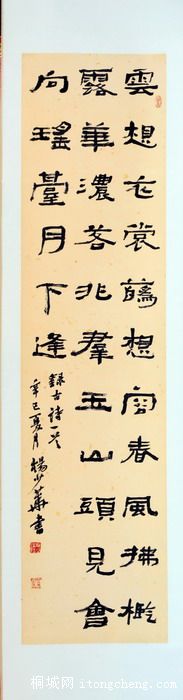 雲想衣裳蘤想容春風拂檻
露華濃若非羣玉山頭見會
向瑤臺月下逢
録古詩一首
辛巳夏月楊少華書
桐城网 itongcheng.com